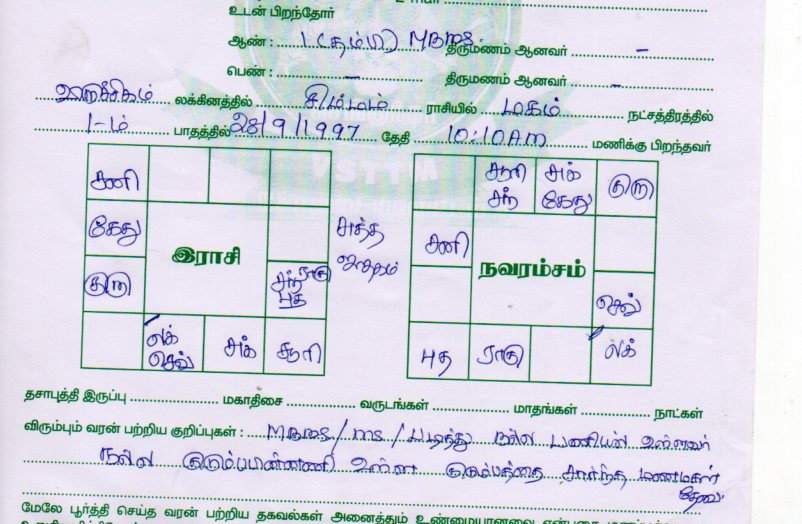 உடன் பிறந்தோர்
ஆண் : 1 (தம்பி) MBBS. திருமணம் ஆனவர் -
பெண் : - திருமணம் ஆனவர் -
லக்கினத்தில் சிம்மம் ராசியில் மகம் நட்சத்திரத்தில்
1-ம் பாதத்தில் 28/9/1997 தேதி 10:10AM மணிக்கு பிறந்தவர்
சனி சூரி சந் சுக் கேது குரு
கேது சுத்த ஜாதகம் சனி
இராசி நவரம்சம்
குரு சந் ராகு புத செவ்
லக் செவ் சுக் சூரி புத ராகு லக்
தசாபுத்தி இருப்பு மகாதிசை வருடங்கள் மாதங்கள் நாட்கள்
விரும்பும் வரன் பற்றிய குறிப்புகள் : MBBS/MS/ படித்து நல்ல பணியில் உள்ளவர்
நல்ல குடும்பபின்னணி உள்ள குடும்பத்தை சார்ந்த மணமகன்
தேவை
மேலே பூர்த்தி செய்த வரன் பற்றிய தகவல்கள் அனைத்தும் உண்மையானவை என்பதை